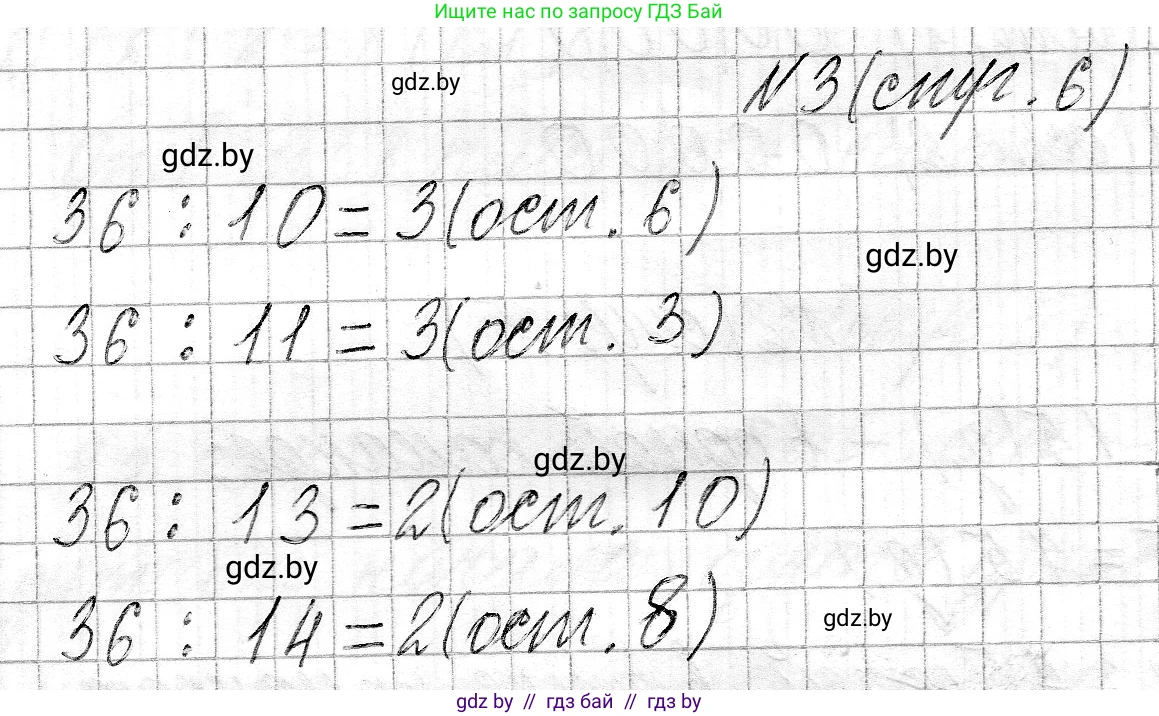 Ищите нас по запросу ГДЗ Бай
gdz.by
№3(стр. 6)
gdz.by
36 : 10 = 3(ост. 6)
gdz.by
36 : 11 = 3(ост. 3)
gdz.by
36 : 13 = 2(ост. 10)
gdz.by
36 : 14 = 2(ост. 8)
gdz.by
gdz by // гдз бай // гдз by